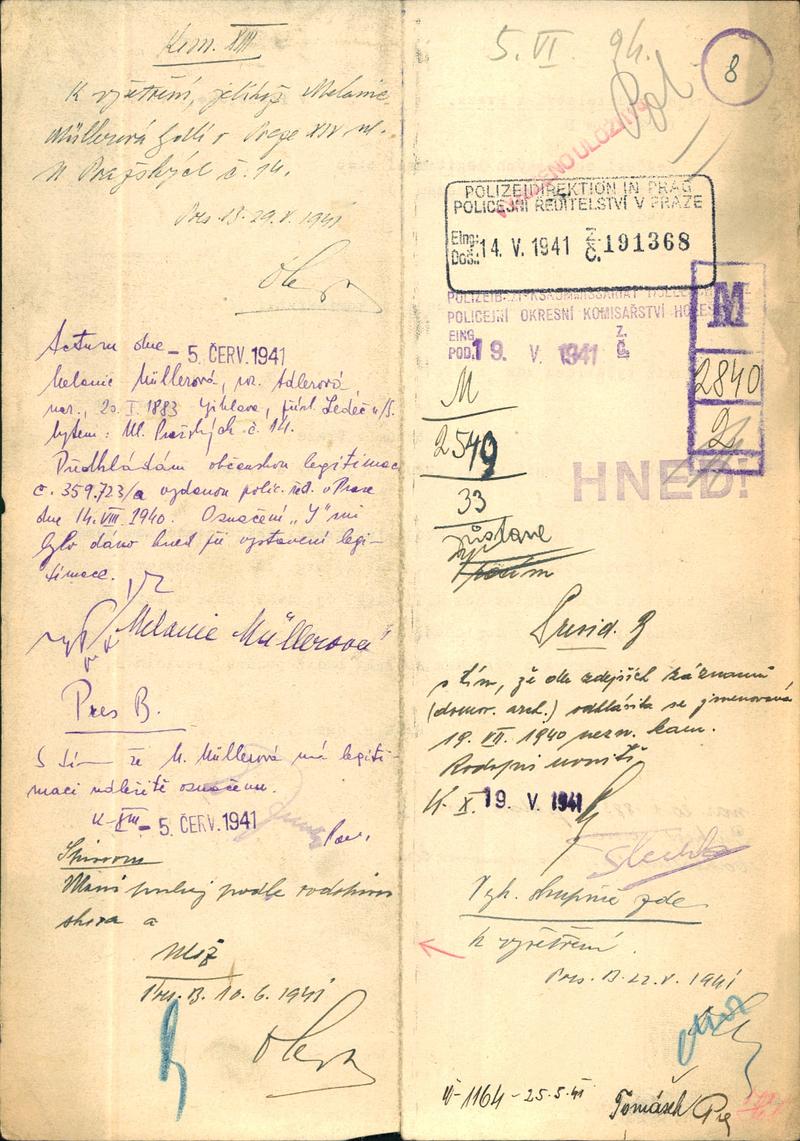 Kom. XIII
K vyšetření, jelikož Melanie
Müllerová bydlí v Praze XIV ul.
N Pražských č. 14.
Pres. B. 29.V. 1941
Actum dne - 5. ČERV. 1941
Melanie Müllerová, roz. Adlerová
nar. 20. I. 1883 Jihlava, přísl. Ledeč n/S.
bytem: Ul. Pražských č. 14.
Předkládám občanskou legitimaci
č. 359.723/a vydanou polic. řed. v Praze
dne 14. VIII. 1940. Označení „J" mi
bylo dáno hned při vystavení legi-
timace.
Melanie Müllerová
Pres B.
S tím že M. Müllerová má legiti-
maci náležitě označenu.
K-XIII - 5. ČERV. 1941
podle
a
Pres. B. 10. 6. 1941
5. VI. 94.
8
POLIZEIDIREKTION IN PRAG
POLICEJNÍ ŘEDITELSTVÍ V PRAZE
Eing.:
Doš.: 14. V. 1941 Z. Č. 191368
POLICEJNÍ OKRESNÍ KOMISAŘSTVÍ
EING.
POD. 19. V. 1941 Z. Č.
M
2840
2
M
2549
33
HNED!
zůstane
Presid. B
s tím, že dle zdejších záznamů
(domov. arch.) odhlásila se jmenovaná
19. VII. 1940 nezn. kam.
K. X. 19. V. 1941
Vyh. skupině zde
k vyšetření.
Pres. B. 22. V. 1941
1164 - 25.5.41
Tomášek